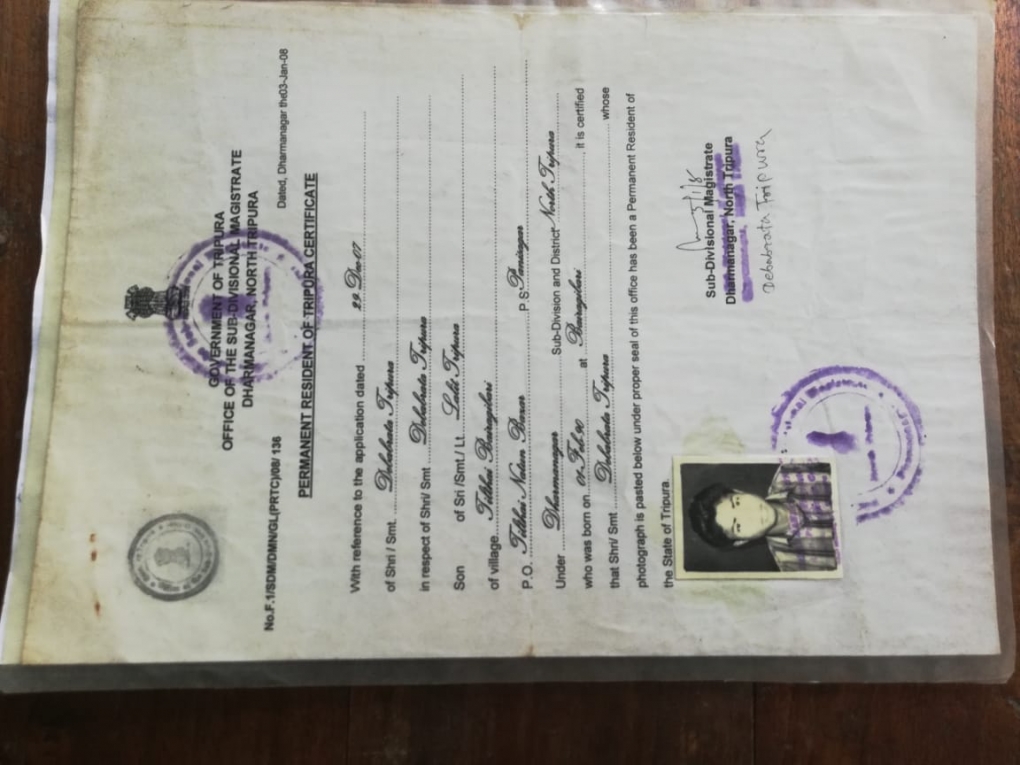 GOVERNMENT OF TRIPURA
OFFICE OF THE SUB-DIVISIONAL MAGISTRATE
DHARMANAGAR, NORTH TRIPURA
No.F.1/SDM/DMN/GL(PRTC)/08/ 136 Dated, Dharmanagar the03-Jan-08
PERMANENT RESIDENT OF TRIPURA CERTIFICATE
With reference to the application dated 29-Dec-07
of Shri / Smt. Debabrata Tripura
in respect of Shri/ Smt Debabrata Tripura
Son of Sri /Smt./ Lt. Lalit Tripura
of village Tilthai Bairagibari
P.O. Tilthai Natun Bazar P.S. Panisagar
Under Dharmanagar Sub-Division and District North Tripura
who was born on 01-Feb-90 at Bairagibari it is certified
that Shri/ Smt Debabrata Tripura whose
photograph is pasted below under proper seal of this office has been a Permanent Resident of
the State of Tripura.
Sub-Divisional Magistrate
Dharmanagar, North Tripura
Debabrata Tripura